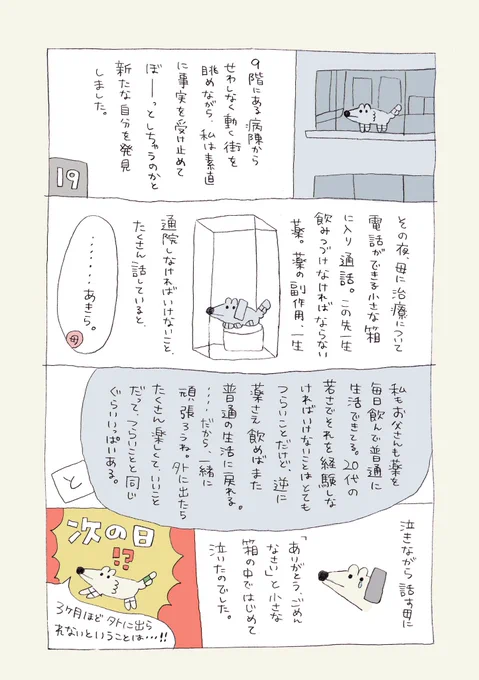 9階にある病陳から
せわしなく動く街を
眺めながら、私は素直
に事実を受け止めて
ぼーーっとしちゃうのかと
新たな自分を発見
しました。
19
その夜、母に治療について
電話ができる小さな箱
に入り通話。この先一生
飲みつづけなければならない
薬。薬の副作用、一生
通院しなければいけないこと、
たくさん話していると、
‥‥‥‥あきら。
母
私もお父さんも薬を
毎日飲んで普通に
生活できてる。20代の
若さでそれを経験しな
ければいけないことはとても
つらいことだけど、逆に
薬さえ飲めばまた
普通の生活に戻れる。
‥‥だから、一緒に
頑張ろうね。外に出たら
たくさん楽しくて、いいこと
だって、つらいことと同じ
ぐらいいっぱいある。
と
泣きながら話す母に
「ありがとう、ごめん
なさい」と小さな
箱の中ではじめて
泣いたのでした。
次の日
!?
3ヶ月ほど外に出ら
れないということは…!!